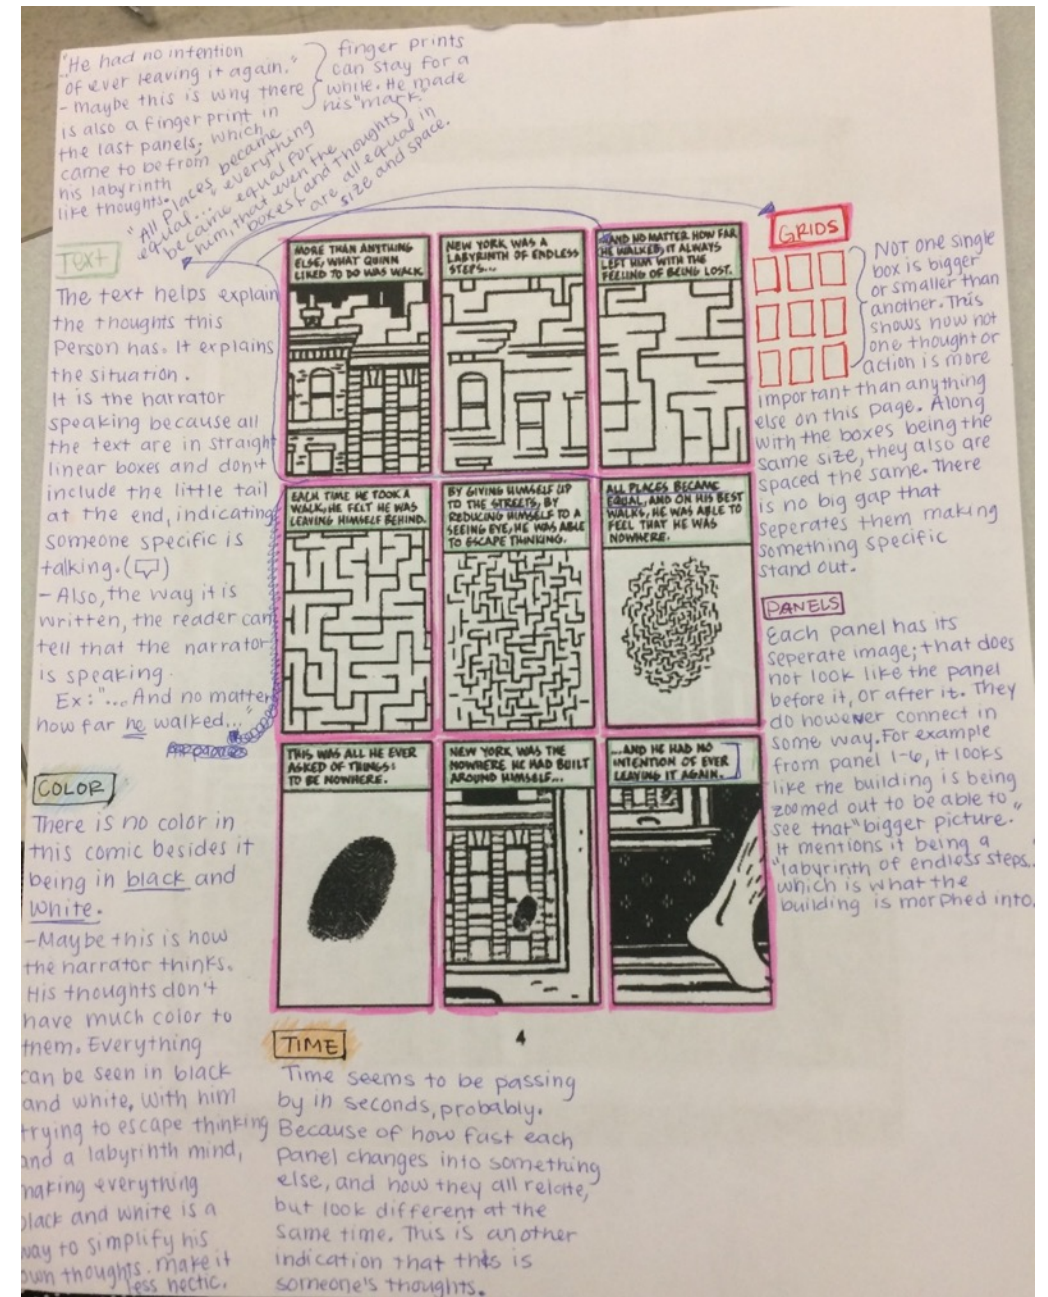 "He had no intention
of ever leaving it again."
- Maybe this is why there
is also a finger print in
the last panels, which
came to be from
his labyrinth
like thoughts.
finger prints
can stay for a
while. He made
his "mark."
"All places became
equal..." everything
became equal for
him, that even the
boxes (and thoughts)
are all equal in
size and space.
Text
The text helps explain
the thoughts this
Person has. It explains
the situation.
It is the narrator
speaking because all
the text are in straight
linear boxes and don't
include the little tail
at the end, indicating
someone specific is
talking. ( )
- Also, the way it is
written, the reader can
tell that the narrator
is speaking.
Ex: "... And no matter
how far he walked..."
COLOR
There is no color in
this comic besides it
being in black and
White.
-Maybe this is how
the narrator thinks.
His thoughts don't
have much color to
them. Everything
can be seen in black
and white, with him
trying to escape thinking
and a labyrinth mind,
making everything
black and white is a
way to simplify his
own thoughts. make it
less hectic.
MORE THAN ANYTHING
ELSE, WHAT QUINN
LIKED TO DO WAS WALK.
NEW YORK WAS A
LABYRINTH OF ENDLESS
STEPS...
...AND NO MATTER HOW FAR
HE WALKED, IT ALWAYS
LEFT HIM WITH THE
FEELING OF BEING LOST.
EACH TIME HE TOOK A
WALK, HE FELT HE WAS
LEAVING HIMSELF BEHIND.
BY GIVING HIMSELF UP
TO THE STREETS, BY
REDUCING HIMSELF TO A
SEEING EYE, HE WAS ABLE
TO ESCAPE THINKING.
ALL PLACES BECAME
EQUAL, AND ON HIS BEST
WALKS, HE WAS ABLE TO
FEEL THAT HE WAS
NOWHERE.
THIS WAS ALL HE EVER
ASKED OF THINGS:
TO BE NOWHERE.
NEW YORK WAS THE
NOWHERE HE HAD BUILT
AROUND HIMSELF...
...AND HE HAD NO
INTENTION OF EVER
LEAVING IT AGAIN.
4
GRIDS
NOT one single
box is bigger
or smaller than
another. This
shows how not
one thought or
action is more
important than anything
else on this page. Along
with the boxes being the
same size, they also are
spaced the same. There
is no big gap that
seperates them making
something specific
stand out.
PANELS
Each panel has its
seperate image; that does
not look like the panel
before it, or after it. They
do however connect in
some way. For example
from panel 1-6, it looks
like the building is being
zoomed out to be able to
see that "bigger picture."
It mentions it being a
"labyrinth of endless steps..."
which is what the
building is morphed into.
TIME
Time seems to be passing
by in seconds, probably.
Because of how fast each
panel changes into something
else, and how they all relate,
but look different at the
same time. This is another
indication that this is
someone's thoughts.